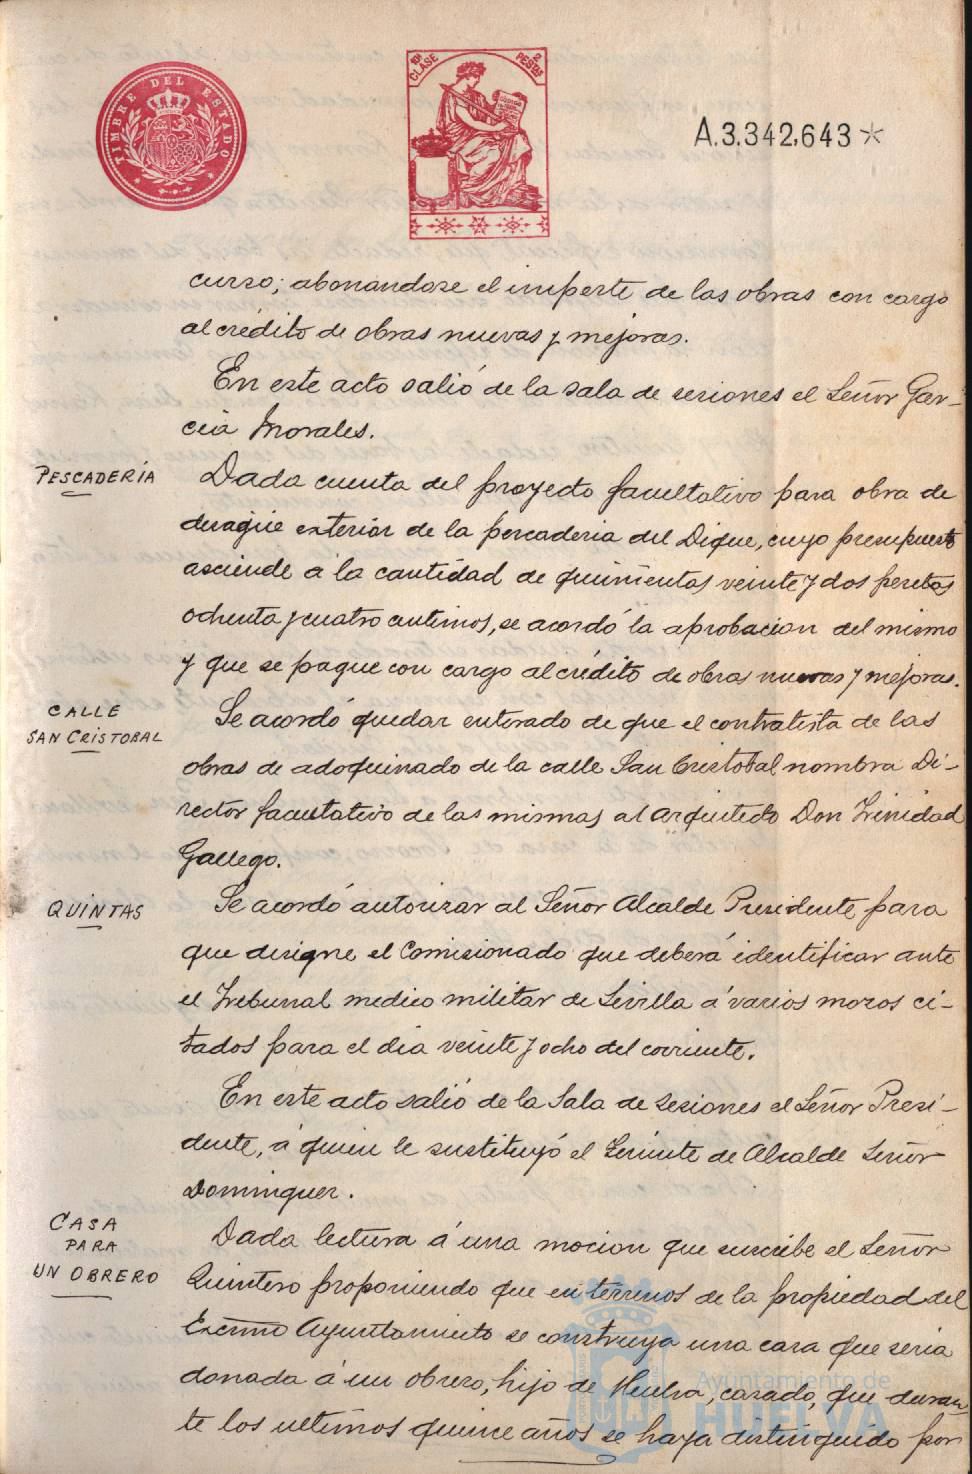 TIMBRE DEL ESTADO
11ª CLASE
2 PESTAS
A.3.342,643 *
curso; abonandose el importe de las obras con cargo
al crédito de obras nuevas y mejoras.
En este acto salió de la sala de sesiones el Señor Gar-
cia Morales.
PESCADERIA
Dada cuenta del proyecto facultativo para obra de
desagüe exterior de la pescaderia del Dique, cuyo presupuesto
asciende á la cantidad de quinientas veinte y dos pesetas
ochenta y cuatro centimos, se acordó la aprobacion del mismo
y que se pague con cargo al crédito de obras nuevas y mejoras.
CALLE
SAN CRISTOBAL
Se acordó quedar enterado de que el contratista de las
obras de adoquinado de la calle San Cristobal nombra Di-
rector facultativo de las mismas al arquitecto Don Trinidad
Gallego.
QUINTAS
Se acordó autorizar al Señor Alcalde Presidente para
que designe el Comisionado que deberá identificar ante
el Tribunal medico militar de Sevilla á varios mozos ci-
tados para el dia veinte y ocho del corriente.
En este acto salió de la Sala de sesiones el Señor Presi-
dente, á quien le sustituyó el Teniente de Alcalde Señor
Dominguez.
CASA
PARA
UN OBRERO
Dada lectura á una mocion que suscribe el Señor
Quintero proponiendo que en terrenos de la propiedad del
Excmo Ayuntamiento se construya una casa que seria
donada á un obrero, hijo de Huelva, casado, que duran-
te los ultimos quince años se haya distinguido por
Ayuntamiento de
HUELVA